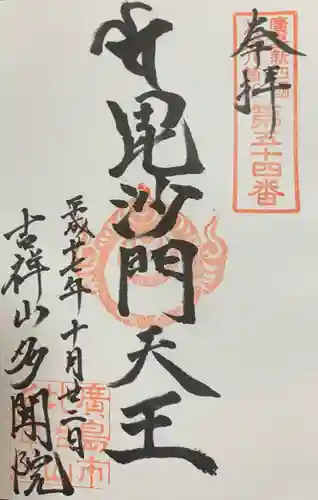 奉拝
第五十四番
毘沙門天王
平成廿七年十月廿二日
吉祥山多聞院
廣島市